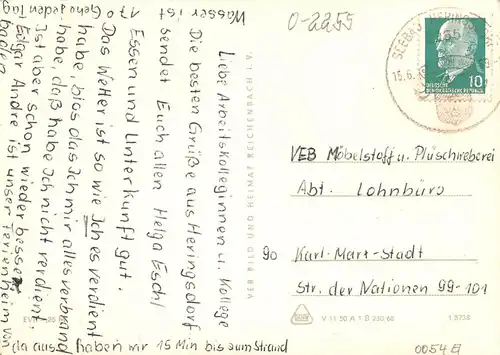 Liebe Arbeitskolleginnen u. Kollege
Die besten Grüße aus Heringsdorf
sendet Euch allen Helga Eschl
Essen und Unterkunft gut.
Das Wetter ist so wie Ich es verdient
habe, bios das Ich mir alles verbrand
habe, daß habe Ich nicht verdient.
Ist aber schon wieder besser
Edgar Andre ist unser Ferienheim von
da aus haben wir 15 Min bis zum Strand
Wasser ist
17° Gehe jeden Tag
baden
VEB BILD UND HEIMAT REICHENBACH
0-2255
SEEBAD HERINGSDORF
15.6.
DEUTSCHE
DEMOKRATISCHE REPUBLIK
10
VEB Möbelstoff u. Plüschweberei
Abt. Lohnbüro
90 Karl-Marx-Stadt
Str. der Nationen 99-101
V 11 50 A 1 B 230/68
1 5738
0054E